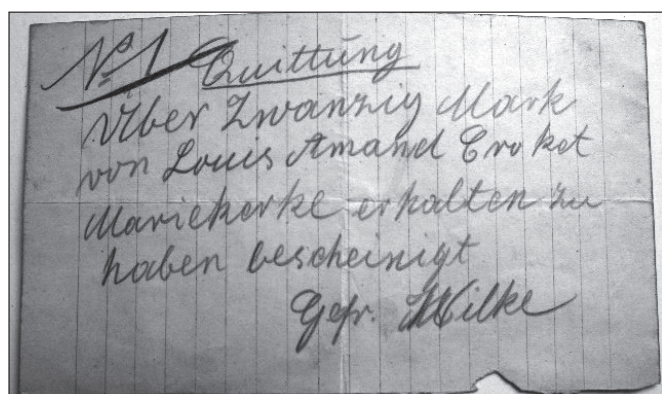 No 1 Quittung
Über Zwanzig Mark
von Louis Amand Croket
Mariekerke erhalten zu
haben bescheinigt
Gefr. Wilke